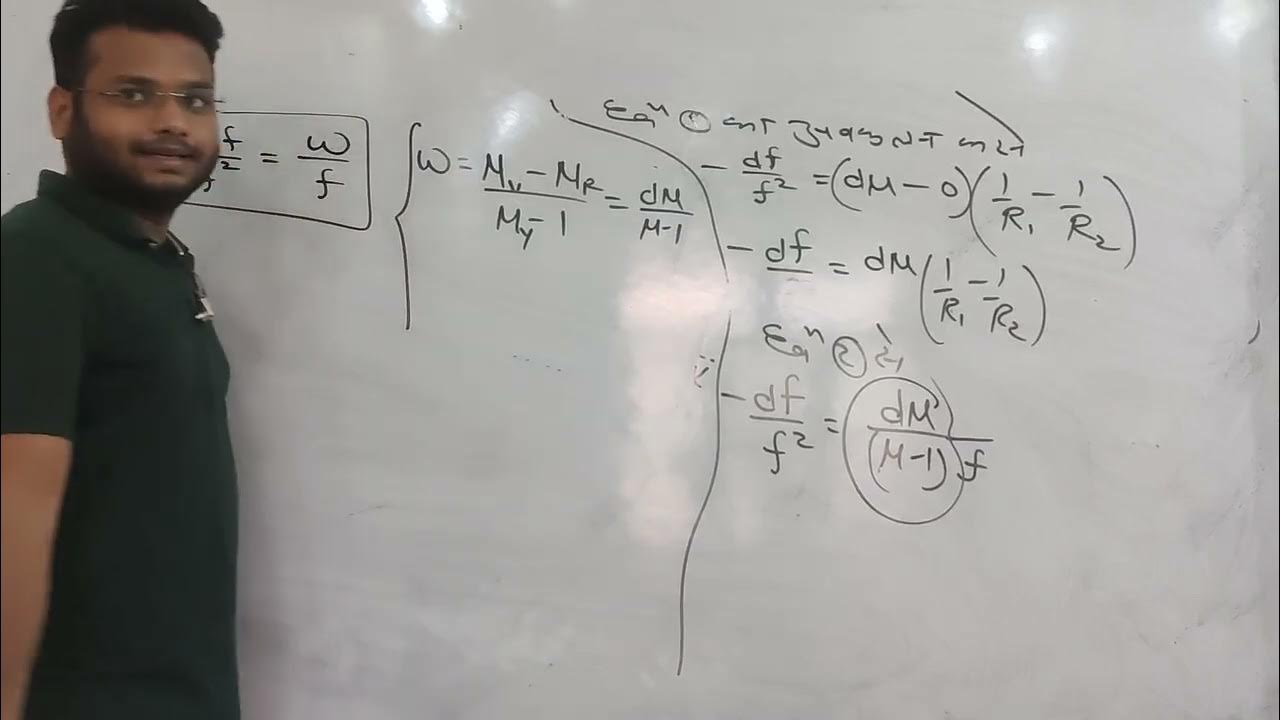 f/f² = ω/f
ω = (μᵥ − μ_R)/(μ_y − 1) = dμ/(μ−1)
Eqⁿ ① का अवकलन करने
− df/f² = (dμ − 0)(1/R₁ − 1/R₂)
− df = dμ(1/R₁ − 1/R₂)
Eqⁿ ② से
− df/f² = dμ/(μ−1)f